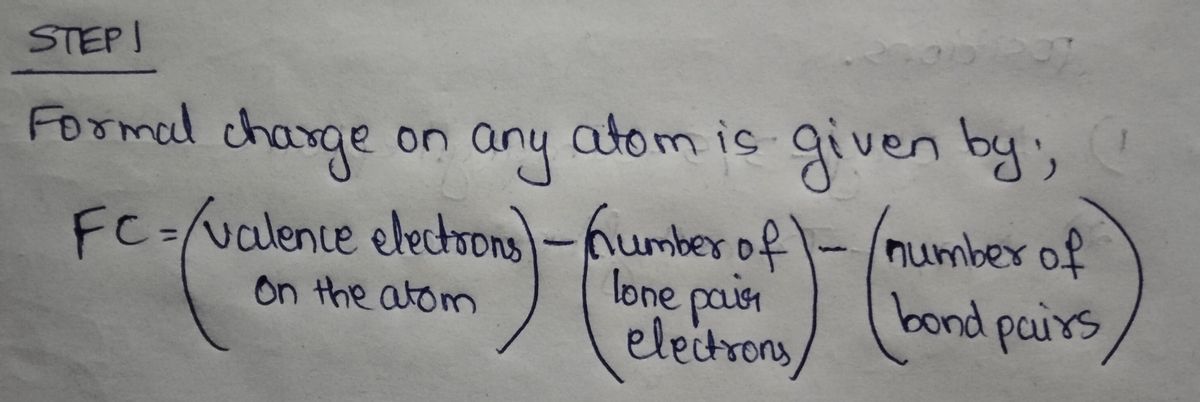 STEP 1
Formal charge on any atom is given by;
FC = (valence electrons on the atom) - (number of lone pair electrons) - (number of bond pairs)